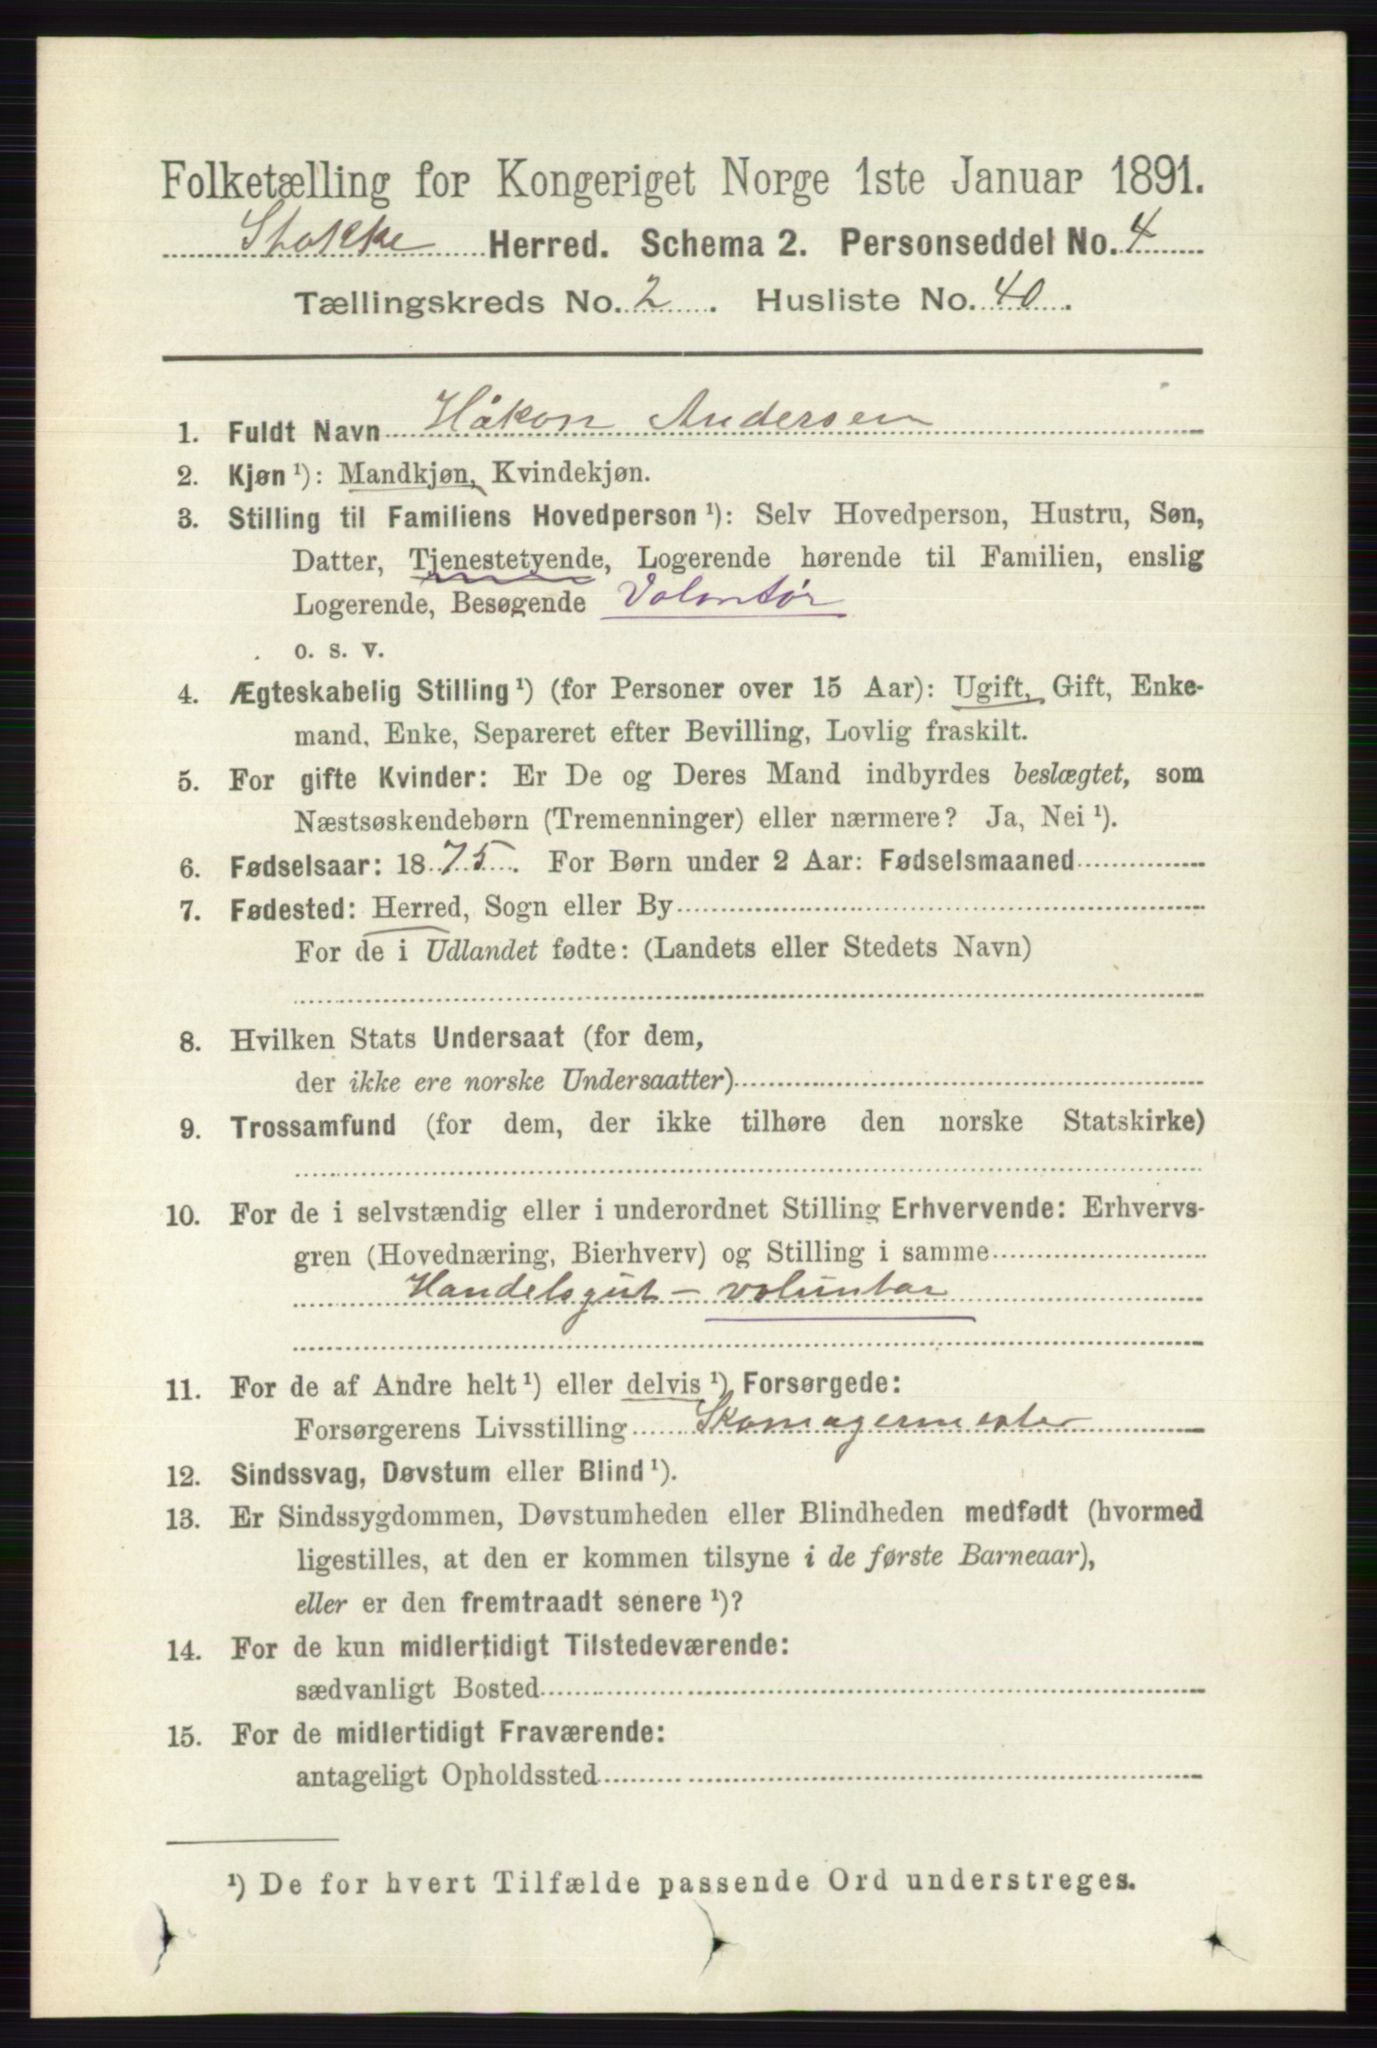 Folketælling for Kongeriget Norge 1ste Januar 1891.
Stokke Herred. Schema 2. Personseddel No. 4
Tællingskreds No. 2. Husliste No. 40.
1. Fuldt Navn Håkon Andersen
2. Kjøn ¹): Mandkjøn, Kvindekjøn.
3. Stilling til Familiens Hovedperson ¹): Selv Hovedperson, Hustru, Søn,
Datter, Tjenestetyende, Logerende hørende til Familien, enslig
Logerende, Besøgende Volontør
o. s. v.
4. Ægteskabelig Stilling ¹) (for Personer over 15 Aar): Ugift, Gift, Enke-
mand, Enke, Separeret efter Bevilling, Lovlig fraskilt.
5. For gifte Kvinder: Er De og Deres Mand indbyrdes beslægtet, som
Næstsøskendebørn (Tremenninger) eller nærmere? Ja, Nei ¹).
6. Fødselsaar: 1875. For Børn under 2 Aar: Fødselsmaaned
7. Fødested: Herred, Sogn eller By
For de i Udlandet fødte: (Landets eller Stedets Navn)
8. Hvilken Stats Undersaat (for dem,
der ikke ere norske Undersaatter)
9. Trossamfund (for dem, der ikke tilhøre den norske Statskirke)
10. For de i selvstændig eller i underordnet Stilling Erhvervende: Erhvervs-
gren (Hovednæring, Bierhverv) og Stilling i samme
Handelsgut - voluntør
11. For de af Andre helt ¹) eller delvis ¹) Forsørgede:
Forsørgerens Livsstilling Skomagermester
12. Sindssvag, Døvstum eller Blind ¹).
13. Er Sindssygdommen, Døvstumheden eller Blindheden medfødt (hvormed
ligestilles, at den er kommen tilsyne i de første Barneaar),
eller er den fremtraadt senere ¹)?
14. For de kun midlertidigt Tilstedeværende:
sædvanligt Bosted
15. For de midlertidigt Fraværende:
antageligt Opholdssted
¹) De for hvert Tilfælde passende Ord understreges.